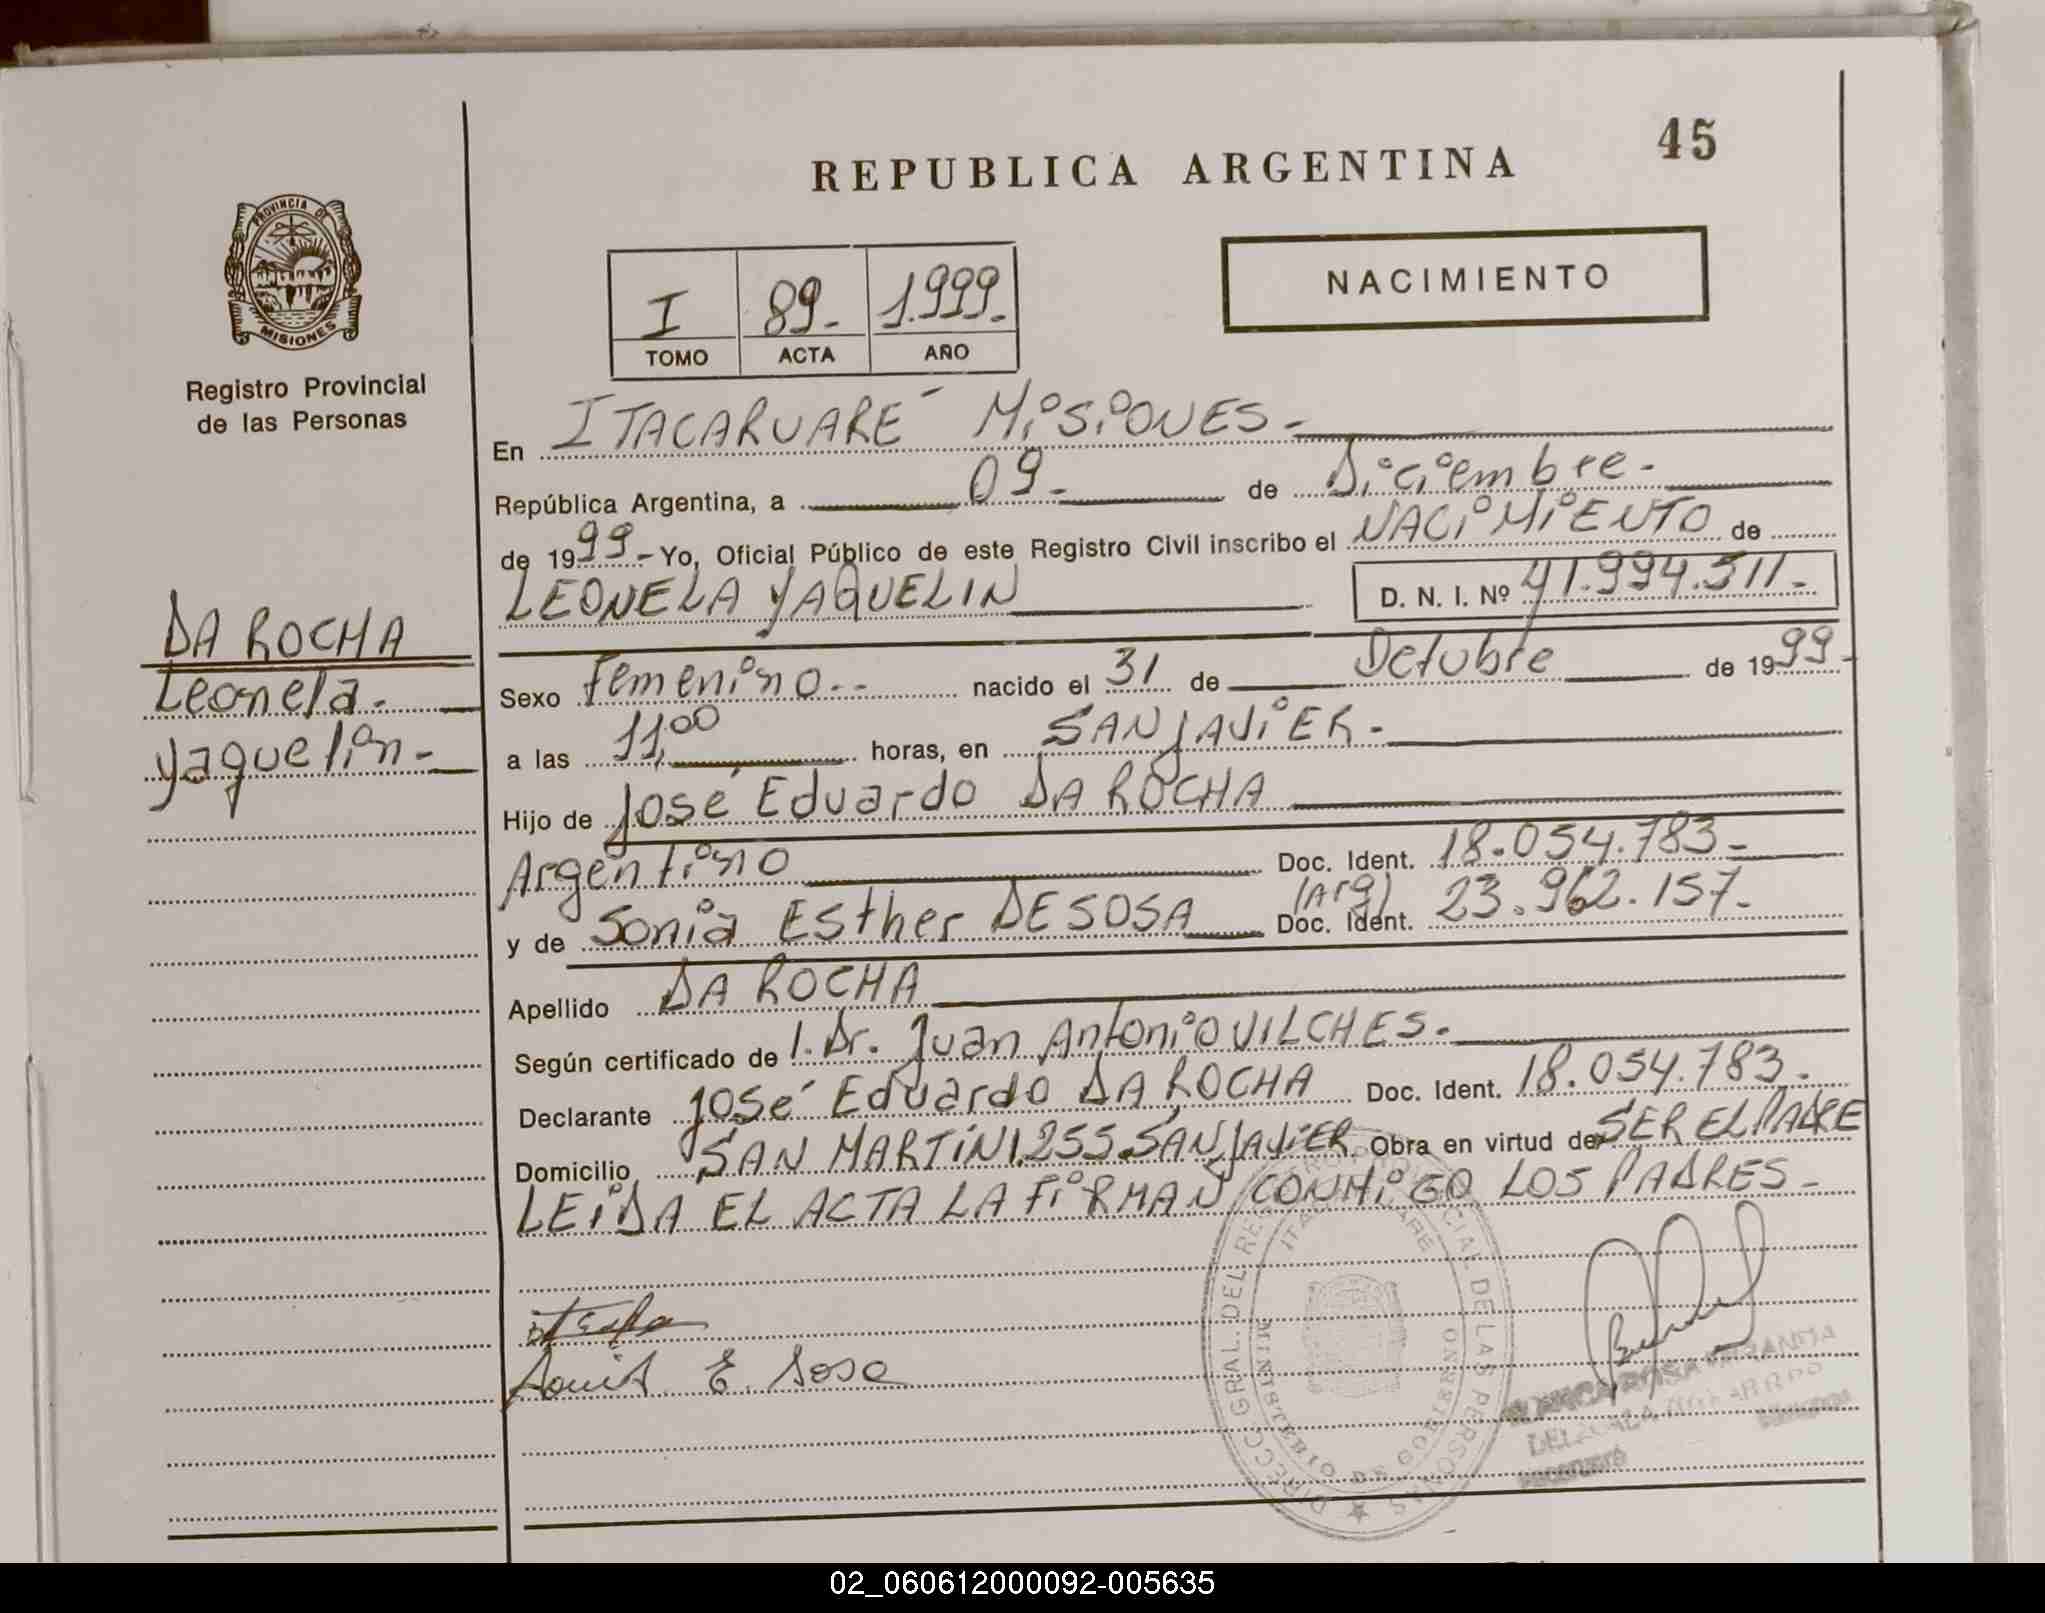 REPUBLICA ARGENTINA
45
PROVINCIA DE
MISIONES
Registro Provincial
de las Personas
NACIMIENTO
I 89- 1.999.-
TOMO ACTA AÑO
En ITACARUARÉ MISIONES-
República Argentina, a 09- de Diciembre-
de 1999- Yo, Oficial Público de este Registro Civil inscribo el NACIMIENTO de
LEONELA YAQUELIN D. N. I. Nº 41.994.511.-
DA ROCHA
Leonela-
Yaquelin-
Sexo Femenino-- nacido el 31 de Octubre de 1999-
a las 11,00 horas, en SAN JAVIER-
Hijo de José Eduardo DA ROCHA
Argentino Doc. Ident. 18.054.783-
y de Sonia Esther DE SOSA (Arg) Doc. Ident. 23.962.157-
Apellido DA ROCHA
Según certificado de 1. Dr. Juan Antonio VILCHES.
Declarante José Eduardo DA ROCHA Doc. Ident. 18.054.783.
Domicilio SAN MARTIN 1.255 SAN JAVIER. Obra en virtud de SER EL PADRE
LEIDA EL ACTA LA FIRMAN CONMIGO LOS PADRES-
E. Sosa
DIRECC. GRAL. DEL REGISTRO PROVINCIAL DE LAS PERSONAS
ITACARUARE
MINISTERIO DE GOBIERNO
02_060612000092-005635